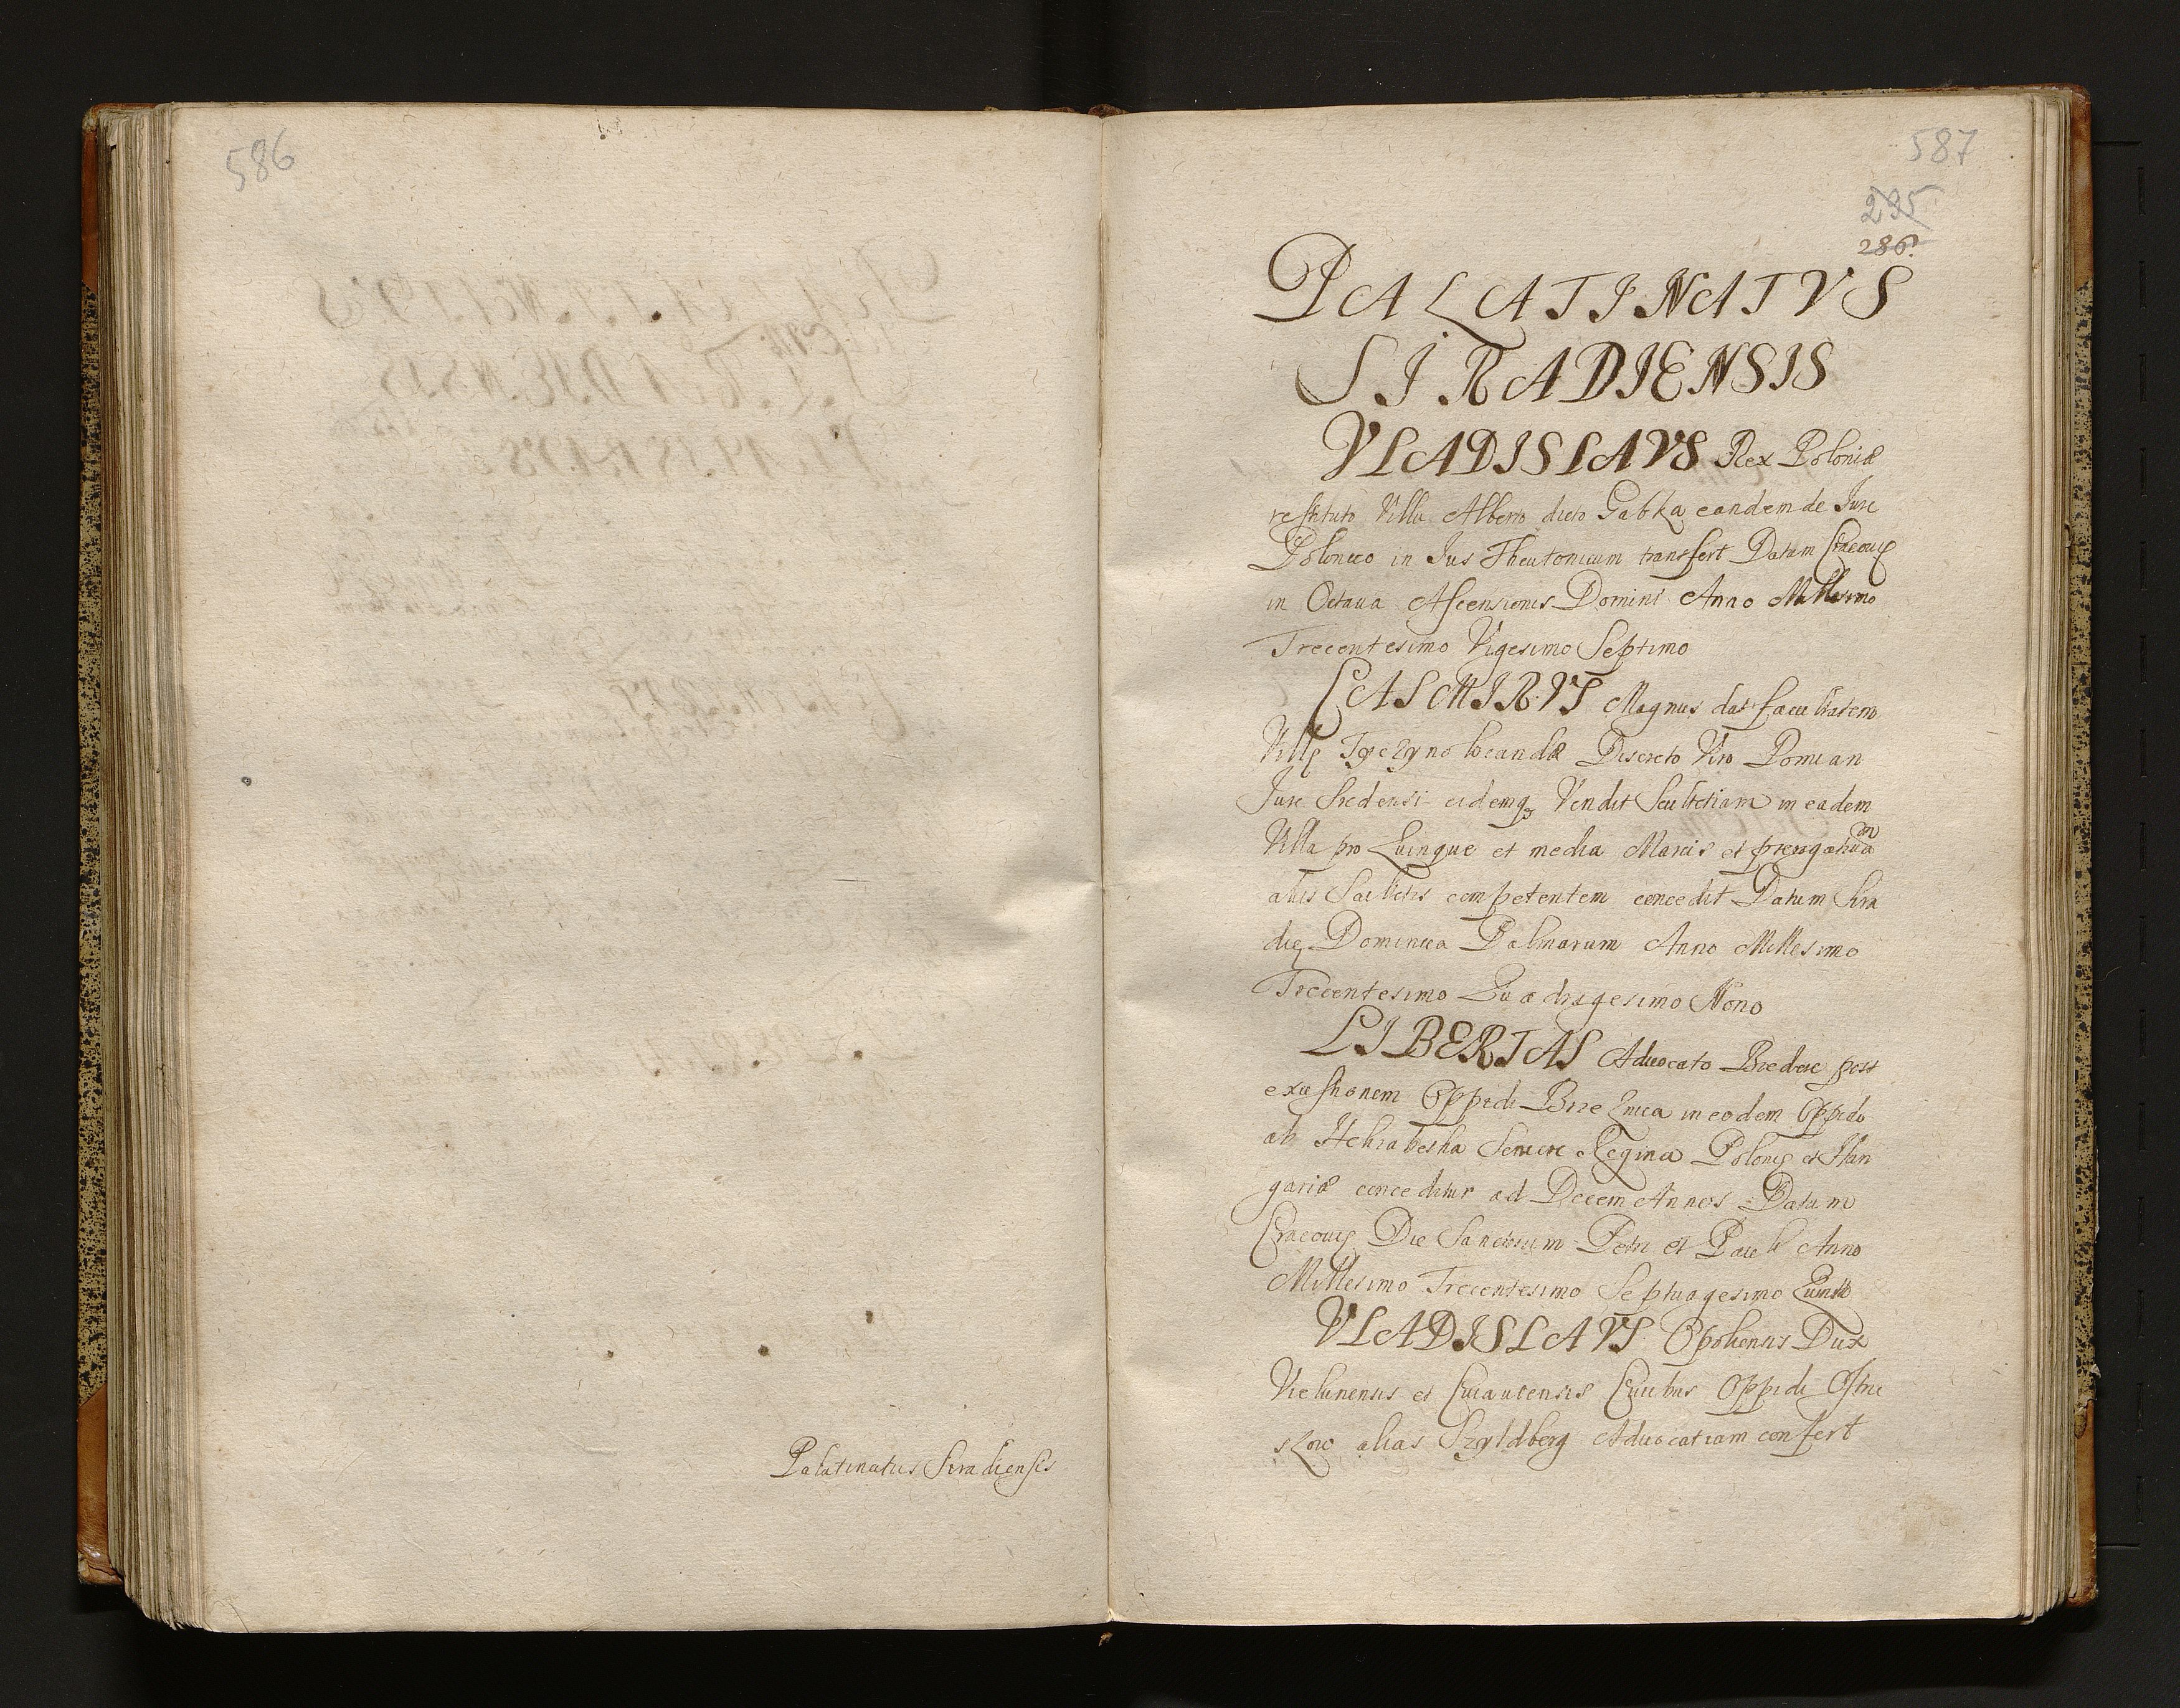 586
Palatinatus Siradiensis
587
295
286.
PALATINATVS
SIRADIENSIS
VLADISLAVS Rex Poloniæ
restituto Villa Alberto dicto Gabka eandem de Iure
Polonico in Ius Theutonicum transfert Datum Cracouię
in Octaua Ascensionis Domini Anno Millesimo
Trecentesimo Vigesimo Septimo
CASMIRVS Magnus dat facultatem
Villę locandæ Discreto Viro Pomian
Iure Sredensi eidemq; Vendit Scultetiam in eadem
Villa pro Quinque et media Marcis et prerogatiuam
alijs Scultetis competentem concedit Datum Sira
dię Dominica Palmarum Anno Millesimo
Trecentesimo Quadragesimo Nono
LIBERTAS Aduocato post
exustionem Oppidi Brzeznica in eodem Oppido
ab Seniore Regina Polonię et Hun
gariæ conceditur ad Decem Annos Datum
Cracouię Die Sanctorum Petri et Pauli Anno
Millesimo Trecentesimo Septuagesimo Quinto
VLADISLAVS Opoliensis Dux
Vielunensis et Cuiauiensis Ciuibus Oppidi Ostrze
szow alias Szyldberg Aduocatiam confert